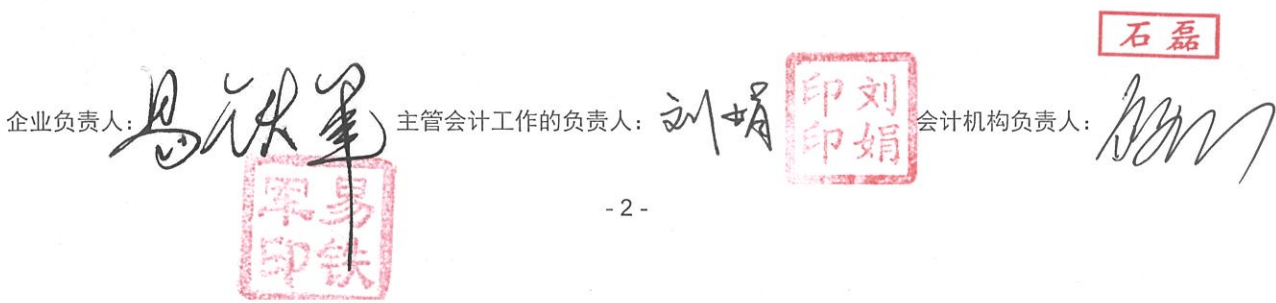 石磊
企业负责人：易铁军 主管会计工作的负责人：刘娟 刘娟印印 会计机构负责人：
易铁军印
- 2 -